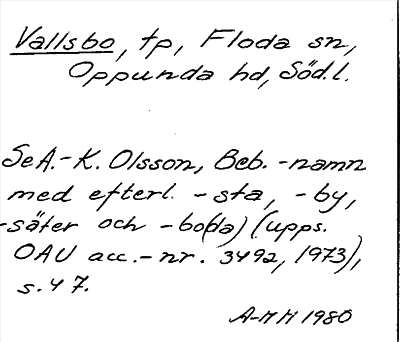 Vallsbo, tp, Floda sn,
Oppunda hd, Söd.l.
Se A.-K. Olsson, Beb. -namn
med efterl. -sta, -by,
-säter och -bo(da) (upps.
OAU acc.-nr. 3492, 1973),
s. 47.
A-MM 1980